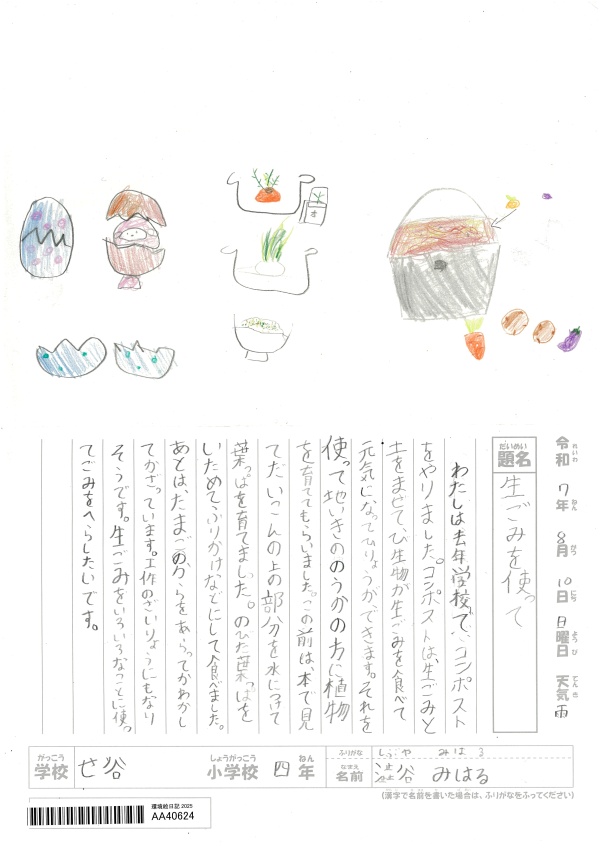 令和 れいわ 7年 ねん 8月 がつ 10日 にち 日曜日 ようび 天気 てんき 雨
だいめい
題名
生ごみを使って
わたしは去年学校で、コンポスト
をやりました。コンポストは、生ごみと
土をまぜて、び生物が生ごみを食べて
元気になってひりょうができます。それを
使って地いきののうかの方に植物
を育ててもらいました。この前は、本で見
てだいこんの上の部分を水につけて
葉っぱを育てました。のびた葉っぱを
いためてふりかけなどにして食べました。
あとは、たまごのからをあらってかわかし
てかざっています。工作のざいりょうにもなり
そうです。生ごみをいろいろなことに使っ
てごみをへらしたいです。
がっこう しょうがっこう ねん
学校 せ谷 小学校 四年
ふりがな しぶや みはる
なまえ
名前 澁谷 みはる
(漢字で名前を書いた場合は、ふりがなをふってください)
環境絵日記 2025
AA40624